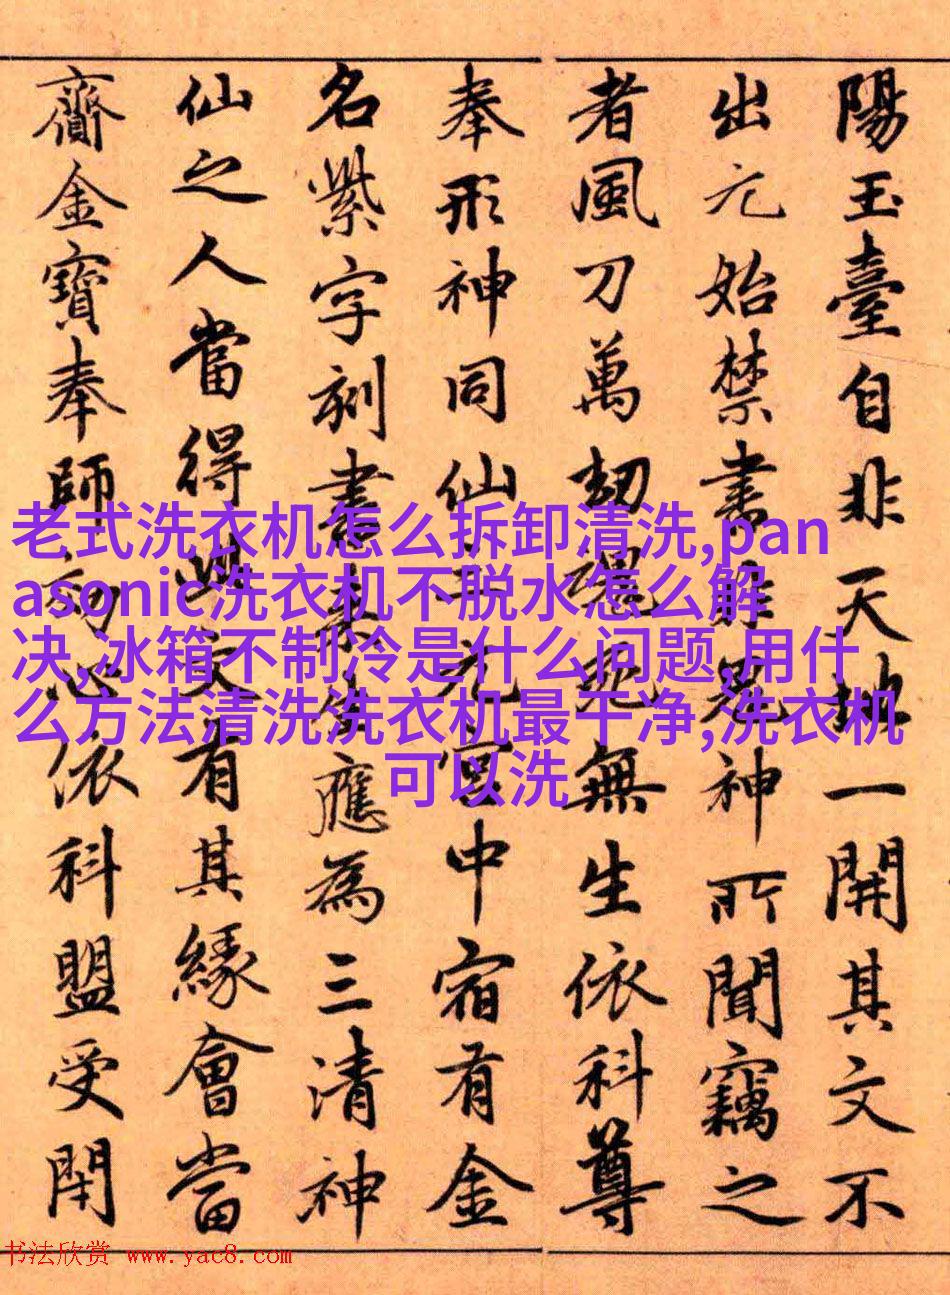 陽玉臺自非天地一開其文不
出元始禁書非鬼神所聞竊之
者風刀萬劫無生依科尊
奉形神同仙宮中宿有金
名紫字刻書來生應為三清神
仙之人當得此文有其緣會當
齎金寶奉師効心依科盟受閇
老式洗衣机怎么拆卸清洗,pan
asonic洗衣机不脱水怎么解
决,冰箱不制冷是什么问题,用什
么方法清洗洗衣机最干净,洗衣机
可以洗
书法欣赏 www.yac8.com